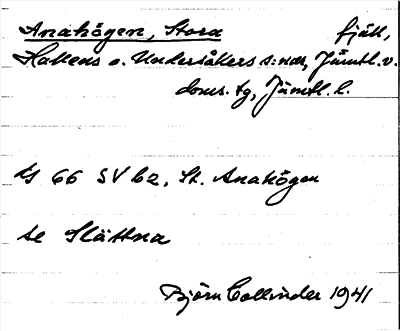 Anahögen, Stora fjäll,
Hallens o. Undersåkers s:nar, Jämtl. v.
doms. tg, Jämtl. l.
G 66 SV b2, St. Anahögen
se Slättna
Björn Collinder 1941